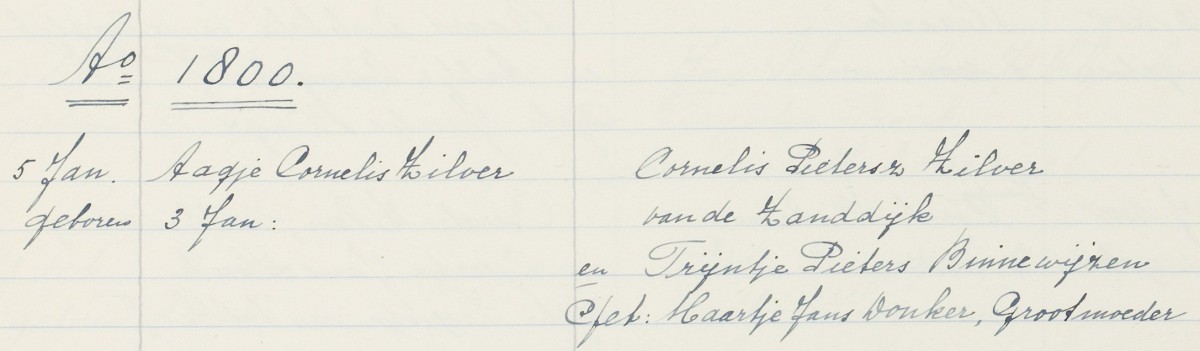 Ao 1800.
5 Jan. Aagje Cornelis Zilver Cornelis Pietersz Zilver
geboren 3 Jan: van de Zanddijk
en Trijntje Pieters Binnewijzen
Get: Maartje Jans Donker, Grootmoeder